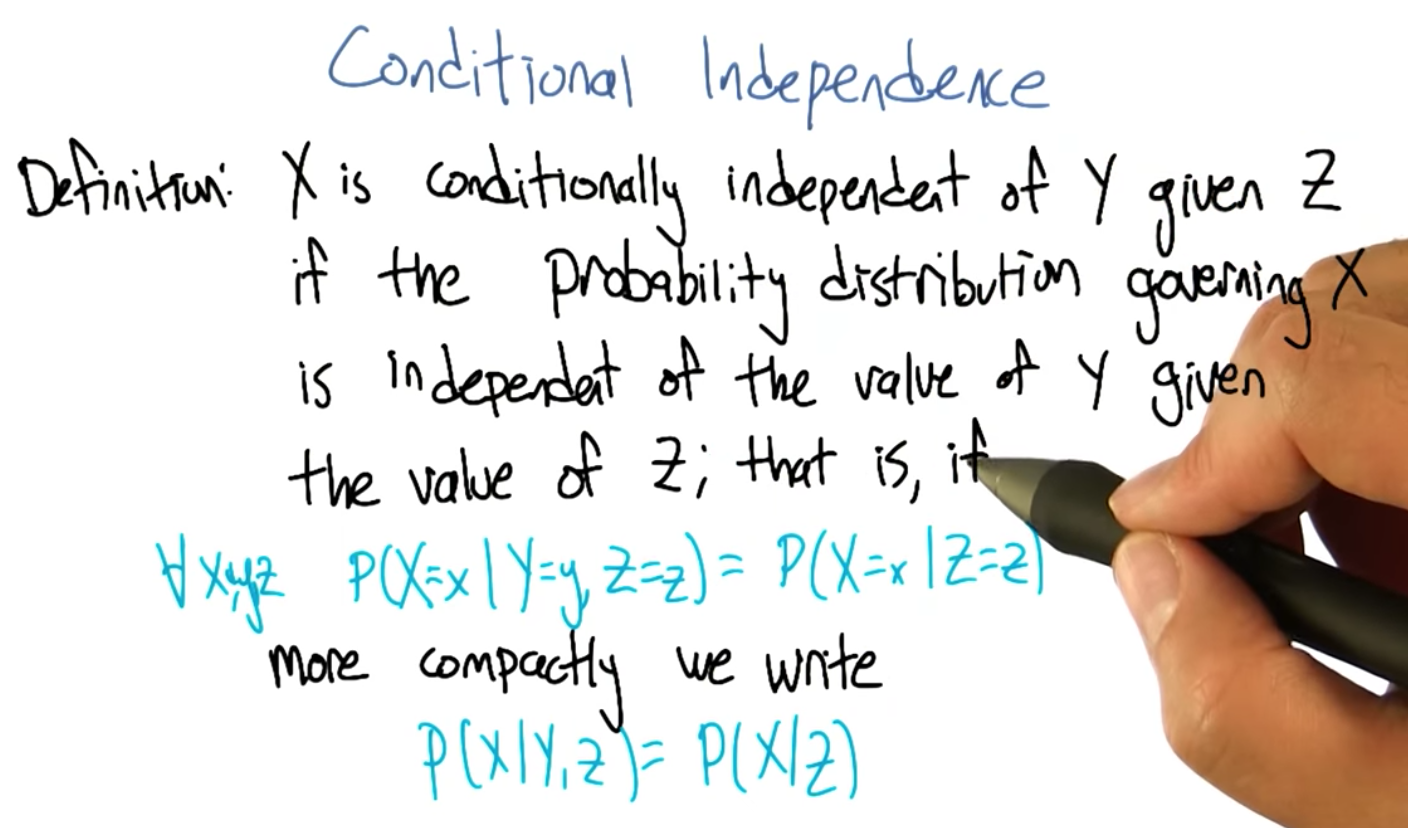 Conditional Independence
Definition: X is conditionally independent of Y given Z
if the probability distribution governing X
is independent of the value of Y given
the value of Z; that is, if
∀x,y,z P(X=x|Y=y, Z=z) = P(X=x|Z=z)
more compactly we write
P(X|Y,Z) = P(X|Z)